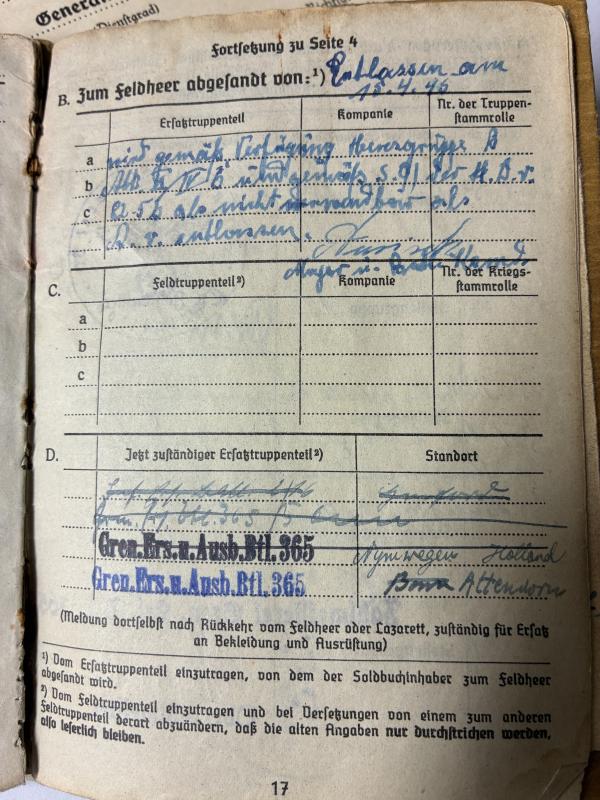 General
(Dienstgrad)
Fortsetzung zu Seite 4
B. Zum Feldheer abgesandt von:¹) Entlassen am
15.4.45
Ersatztruppenteil Kompanie Nr. der Truppen-
stammrolle
a wird gemäß Verfügung Heeresgruppe B
b Abt. IV und gemäß § 91 der H.D.v.
c als nicht verwendbar als
entlassen.
Major u.
C. Feldtruppenteil²) Kompanie Nr. der Kriegs-
stammrolle
a
b
c
D. Jetzt zuständiger Ersatztruppenteil²) Standort
365
Gren.Ers.u.Ausb.Btl.365 Nymwegen Holland
Gren.Ers.u.Ausb.Btl.365 Bonn Attendorn
(Meldung dortselbst nach Rückkehr vom Feldheer oder Lazarett, zuständig für Ersatz
an Bekleidung und Ausrüstung)
¹) Vom Ersatztruppenteil einzutragen, von dem der Soldbuchinhaber zum Feldheer
abgesandt wird.
²) Vom Feldtruppenteil einzutragen und bei Versetzungen von einem zum anderen
Feldtruppenteil derart abzuändern, daß die alten Angaben nur durchstrichen werden,
also leserlich bleiben.
17